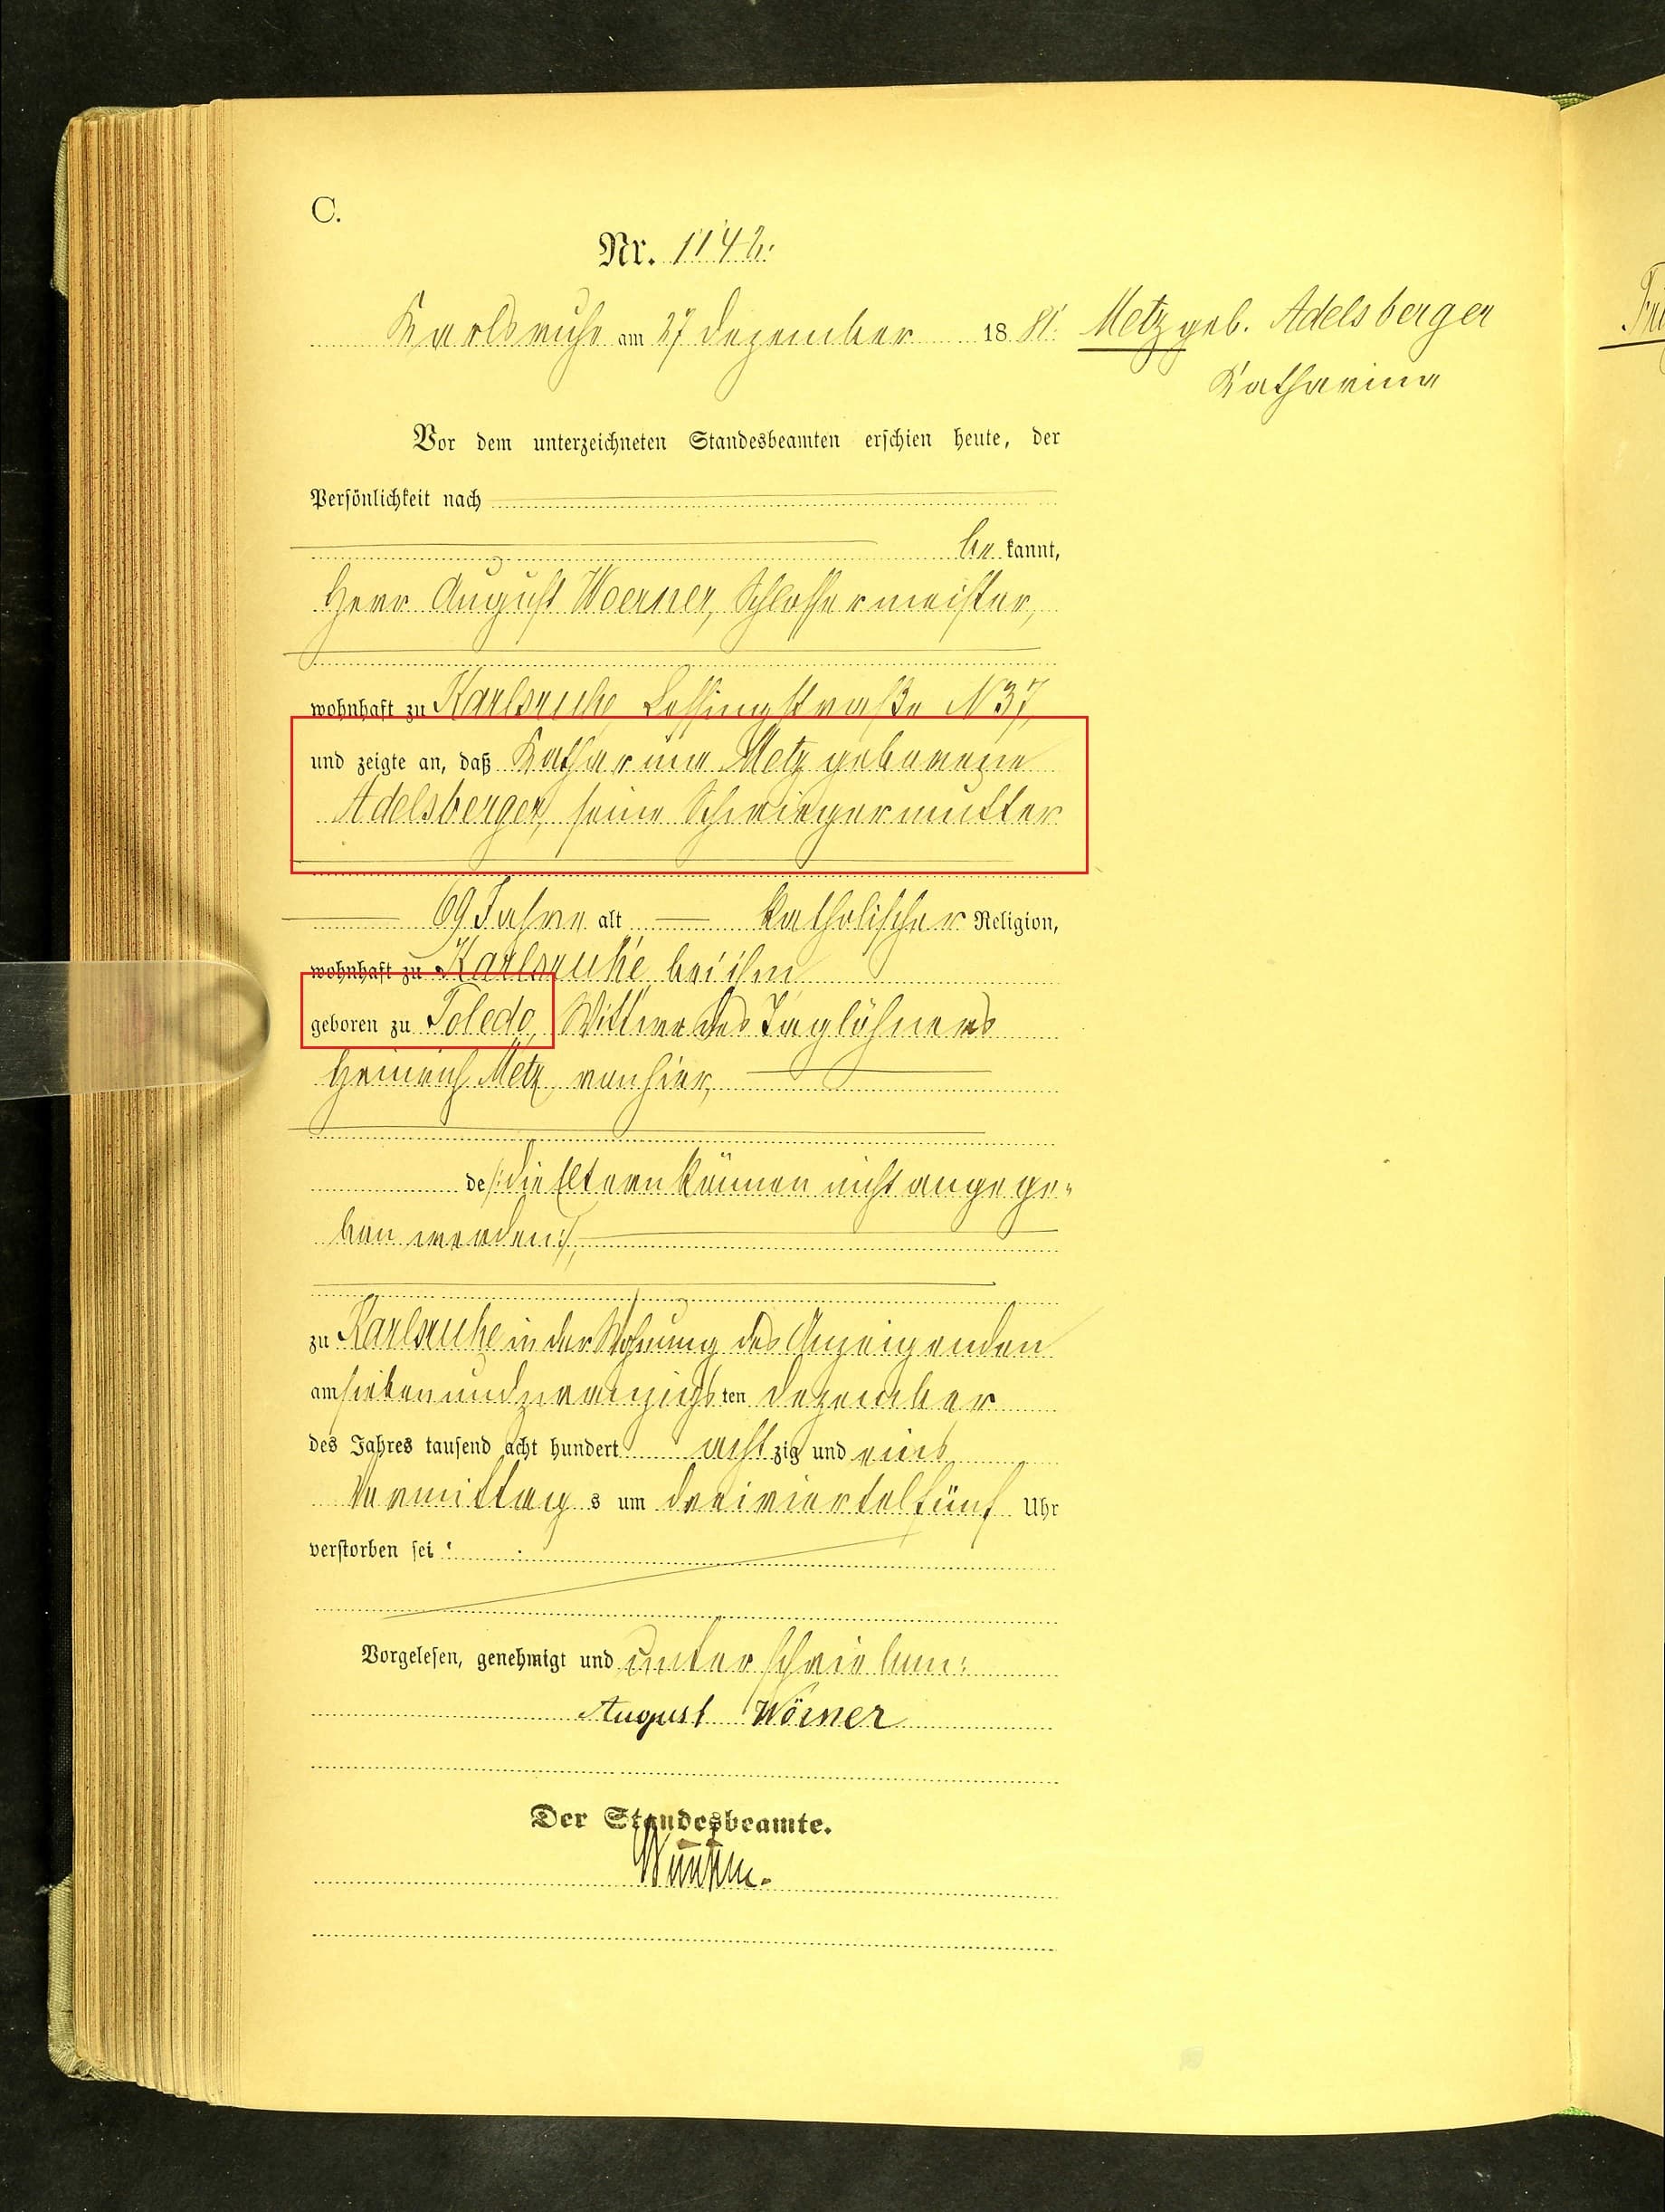 C.
Nr. 1142.
Karlsruhe am 27 Dezember 1881.
Metz geb. Adelsberger
Katharina
Vor dem unterzeichneten Standesbeamten erschien heute, der
Persönlichkeit nach
be kannt,
Herr August Woerner, Schlossermeister,
wohnhaft zu Karlsruhe Lessingstraße N 37,
und zeigte an, daß Katharina Metz geborene
Adelsberger, seine Schwiegermutter
69 Jahre alt katholischer Religion,
wohnhaft zu Karlsruhe bei ihm
geboren zu Toledo, Wittwe des Taglöhners
Heinrich Metz von hier,
de /: die Eltern können nicht angege-
ben werden :/,
zu Karlsruhe in der Wohnung des Anzeigenden
am siebenundzwanzigsten Dezember
des Jahres tausend acht hundert achtzig und eins
Vormittags um dreiviertelfünf Uhr
verstorben sei
Vorgelesen, genehmigt und unterschrieben:
August Wörner
Der Standesbeamte.